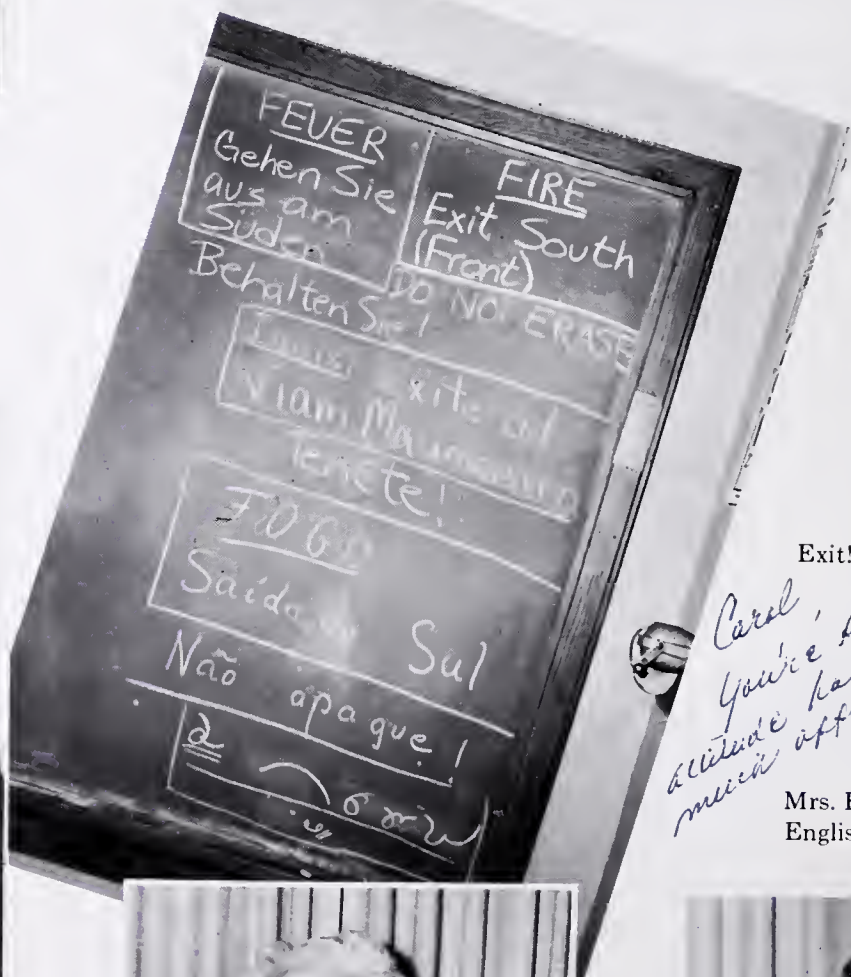 FEUER
Gehen Sie
aus am
Süden
Behalten Sie!
FIRE
Exit South
(Front)
DO NOT ERASE
Ignis! xite ad
Viam Maximam
Tenete!
FOGO
Saída Sul
Não apague!
Exit!
Carol,
You're
attitude
much
Mrs.
Englis